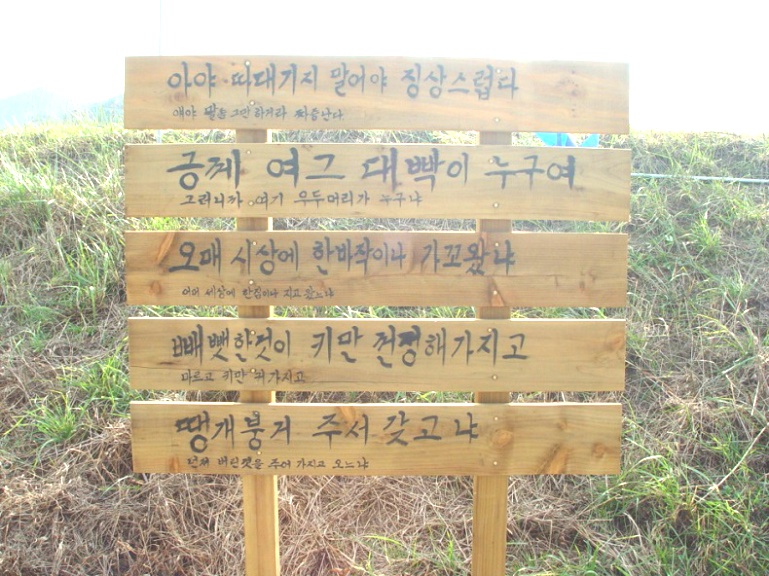 아야 따대기지 말어야 징상스럽다
얘야 말좀 그만 하거라 짜증난다
긍께 여그 대빡이 누구여
그러니까 여기 우두머리가 누구냐
오매 시상에 한바작이나 가꼬왔냐
어머 세상에 한짐이나 지고 왔느냐
빼뺏한것이 키만 전정해가지고
마르고 키만 커가지고
땡개붕거 주서 갖고 냐
던져 버린것을 주어 가지고 오느냐